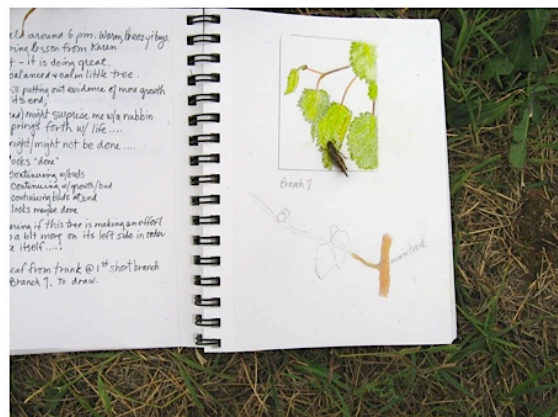 eld around 6 pm. Warm, breezy, bugs.
ring lesson from Karen.
t - it is doing great.
balanced & calm little tree.
ill putting out evidence of more growth
its end;
ead) might surprise me w/a nubbin
prings forth w/ life....
might/might not be done....
looks "done"
continuing w/buds
continuing w/growth/bud
continuing buds at end
looks maybe done
ering if this tree is making an effort
a bit more on its left side in order
e itself....!
eaf from trunk @ 1st short branch
Branch 7. To draw.
Branch 7
main trunk